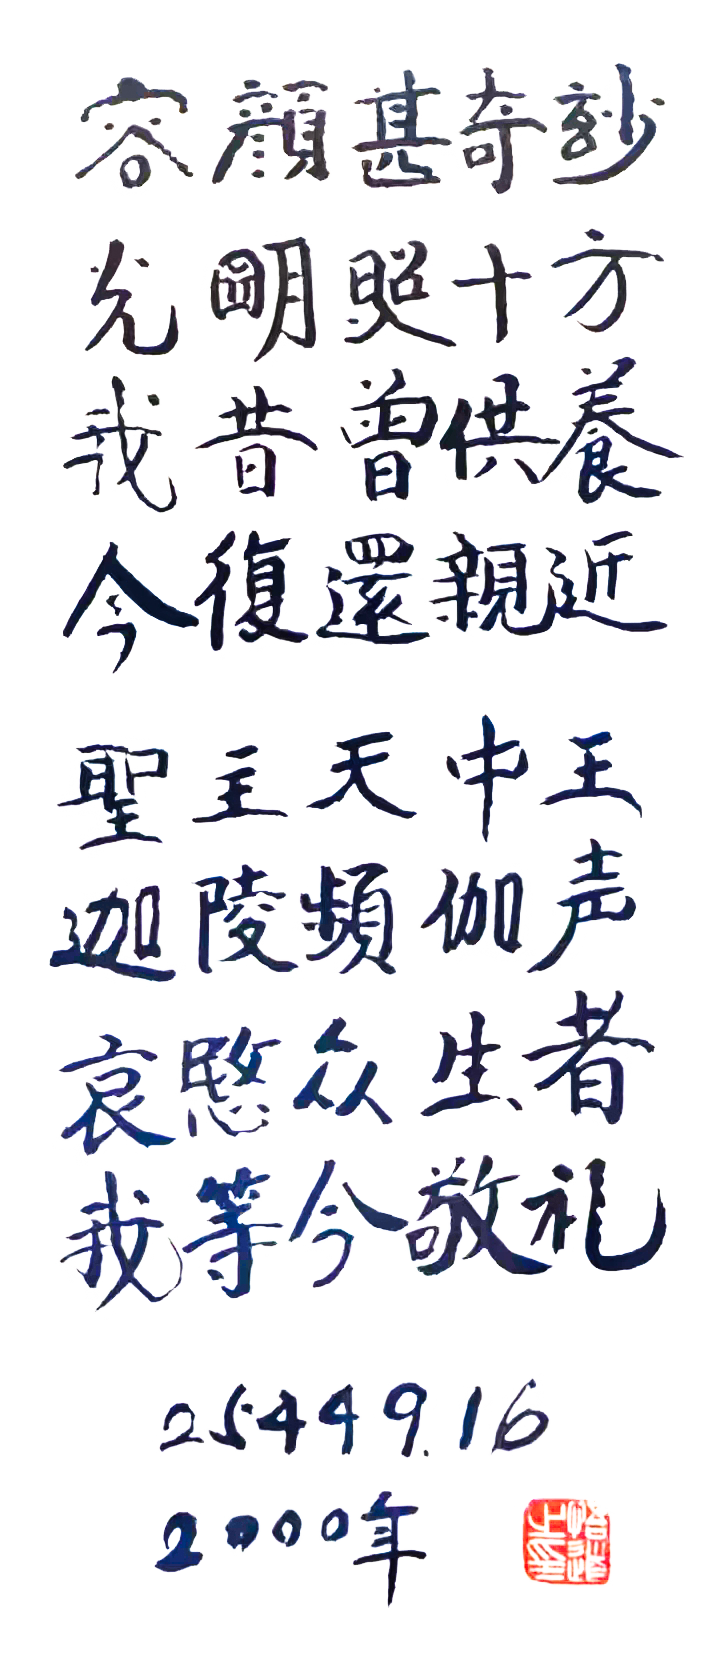 容顔甚奇妙
光明照十方
我昔曾供養
今復還親近
聖主天中王
迦陵頻伽声
哀愍众生者
我等今敬礼
25449.16
2000年